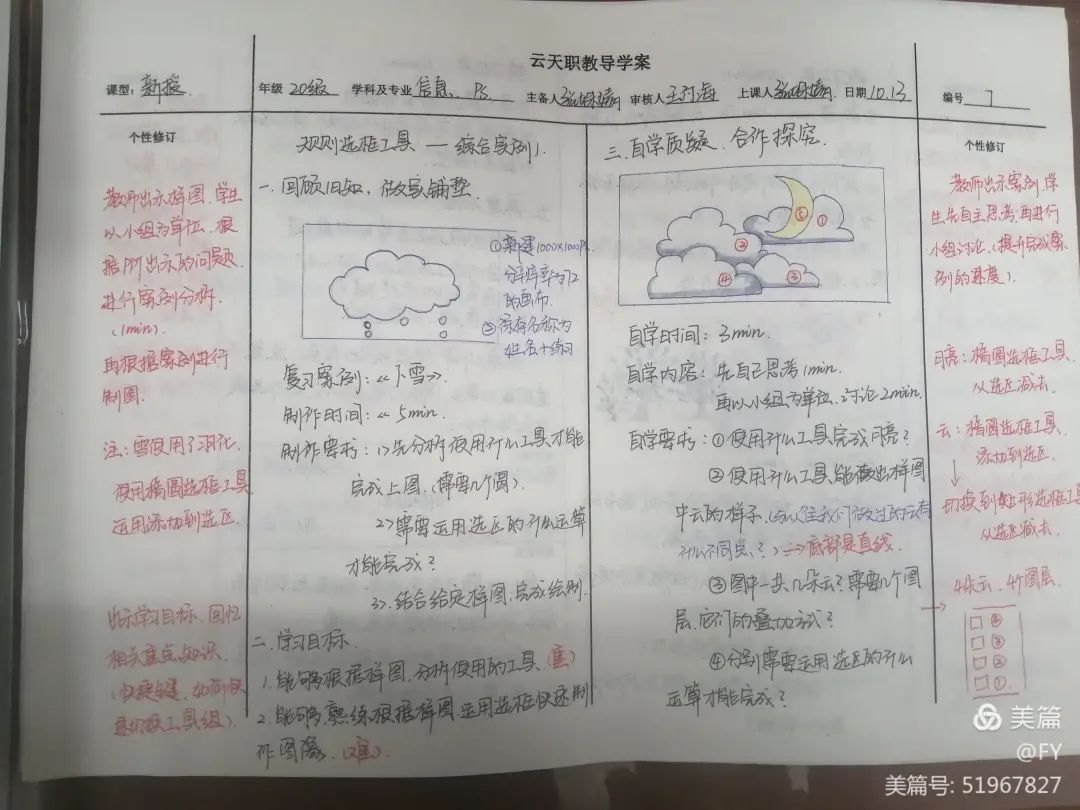 云天职教导学案
课型: 新授
年级 20级 学科及专业 信息、Ps 主备人 审核人 上课人 日期 10.13
编号 7
个性修订
教师出示样图,学生
以小组为单位,根
据所出示的问题
进行案例分析.
(1min).
再根据案例进行
制图.
注:雪使用了羽化.
使用椭圆选框工具
运用添加到选区.
出示学习目标,回忆
相关重点知识.
(快捷键,如何快
速切换工具组).
规则选框工具 — 综合实例1.
一.回顾旧知、做实铺垫
①新建1000×1000Ps.
分辨率为72
的画布.
②保存名称为
姓名+练习
复习案例:《下雪》.
制作时间:《5min.
制作要求:1>先分析使用什么工具才能
完成上图.(需要几个圆).
2>需要运用选区的什么运算
才能完成?
3>.结合给定样图,完成绘制.
二.学习目标.
1.能够根据样图,分析使用的工具.(重)
2.能够熟练根据样图,运用选框快速制
作图像.(难).
三.自学质疑、合作探究.
⑤ ①
②
④ ③
自学时间:3min.
自学内容:先自己思考1min.
再以小组为单位.讨论2min.
自学要求:①使用什么工具完成月亮?
②使用什么工具,能做出样图
中云的样子.(与以往我们做过的云有
什么不同点?)⇒底部是直线.
③图中一共几朵云?需要几个图
层,它们的叠加方式?
④分别需要运用选区的什么
运算才能完成?
个性修订
教师出示案例,学
生先自主思考,再进行
小组讨论.(提升完成案
例的速度).
月亮:椭圆选框工具.
从选区减去.
云:椭圆选框工具.
添加到选区.
切换到矩形选框工具
从选区减去.
4朵云,4个图层.
④
③
②
①
美篇
@FY
美篇号: 51967827